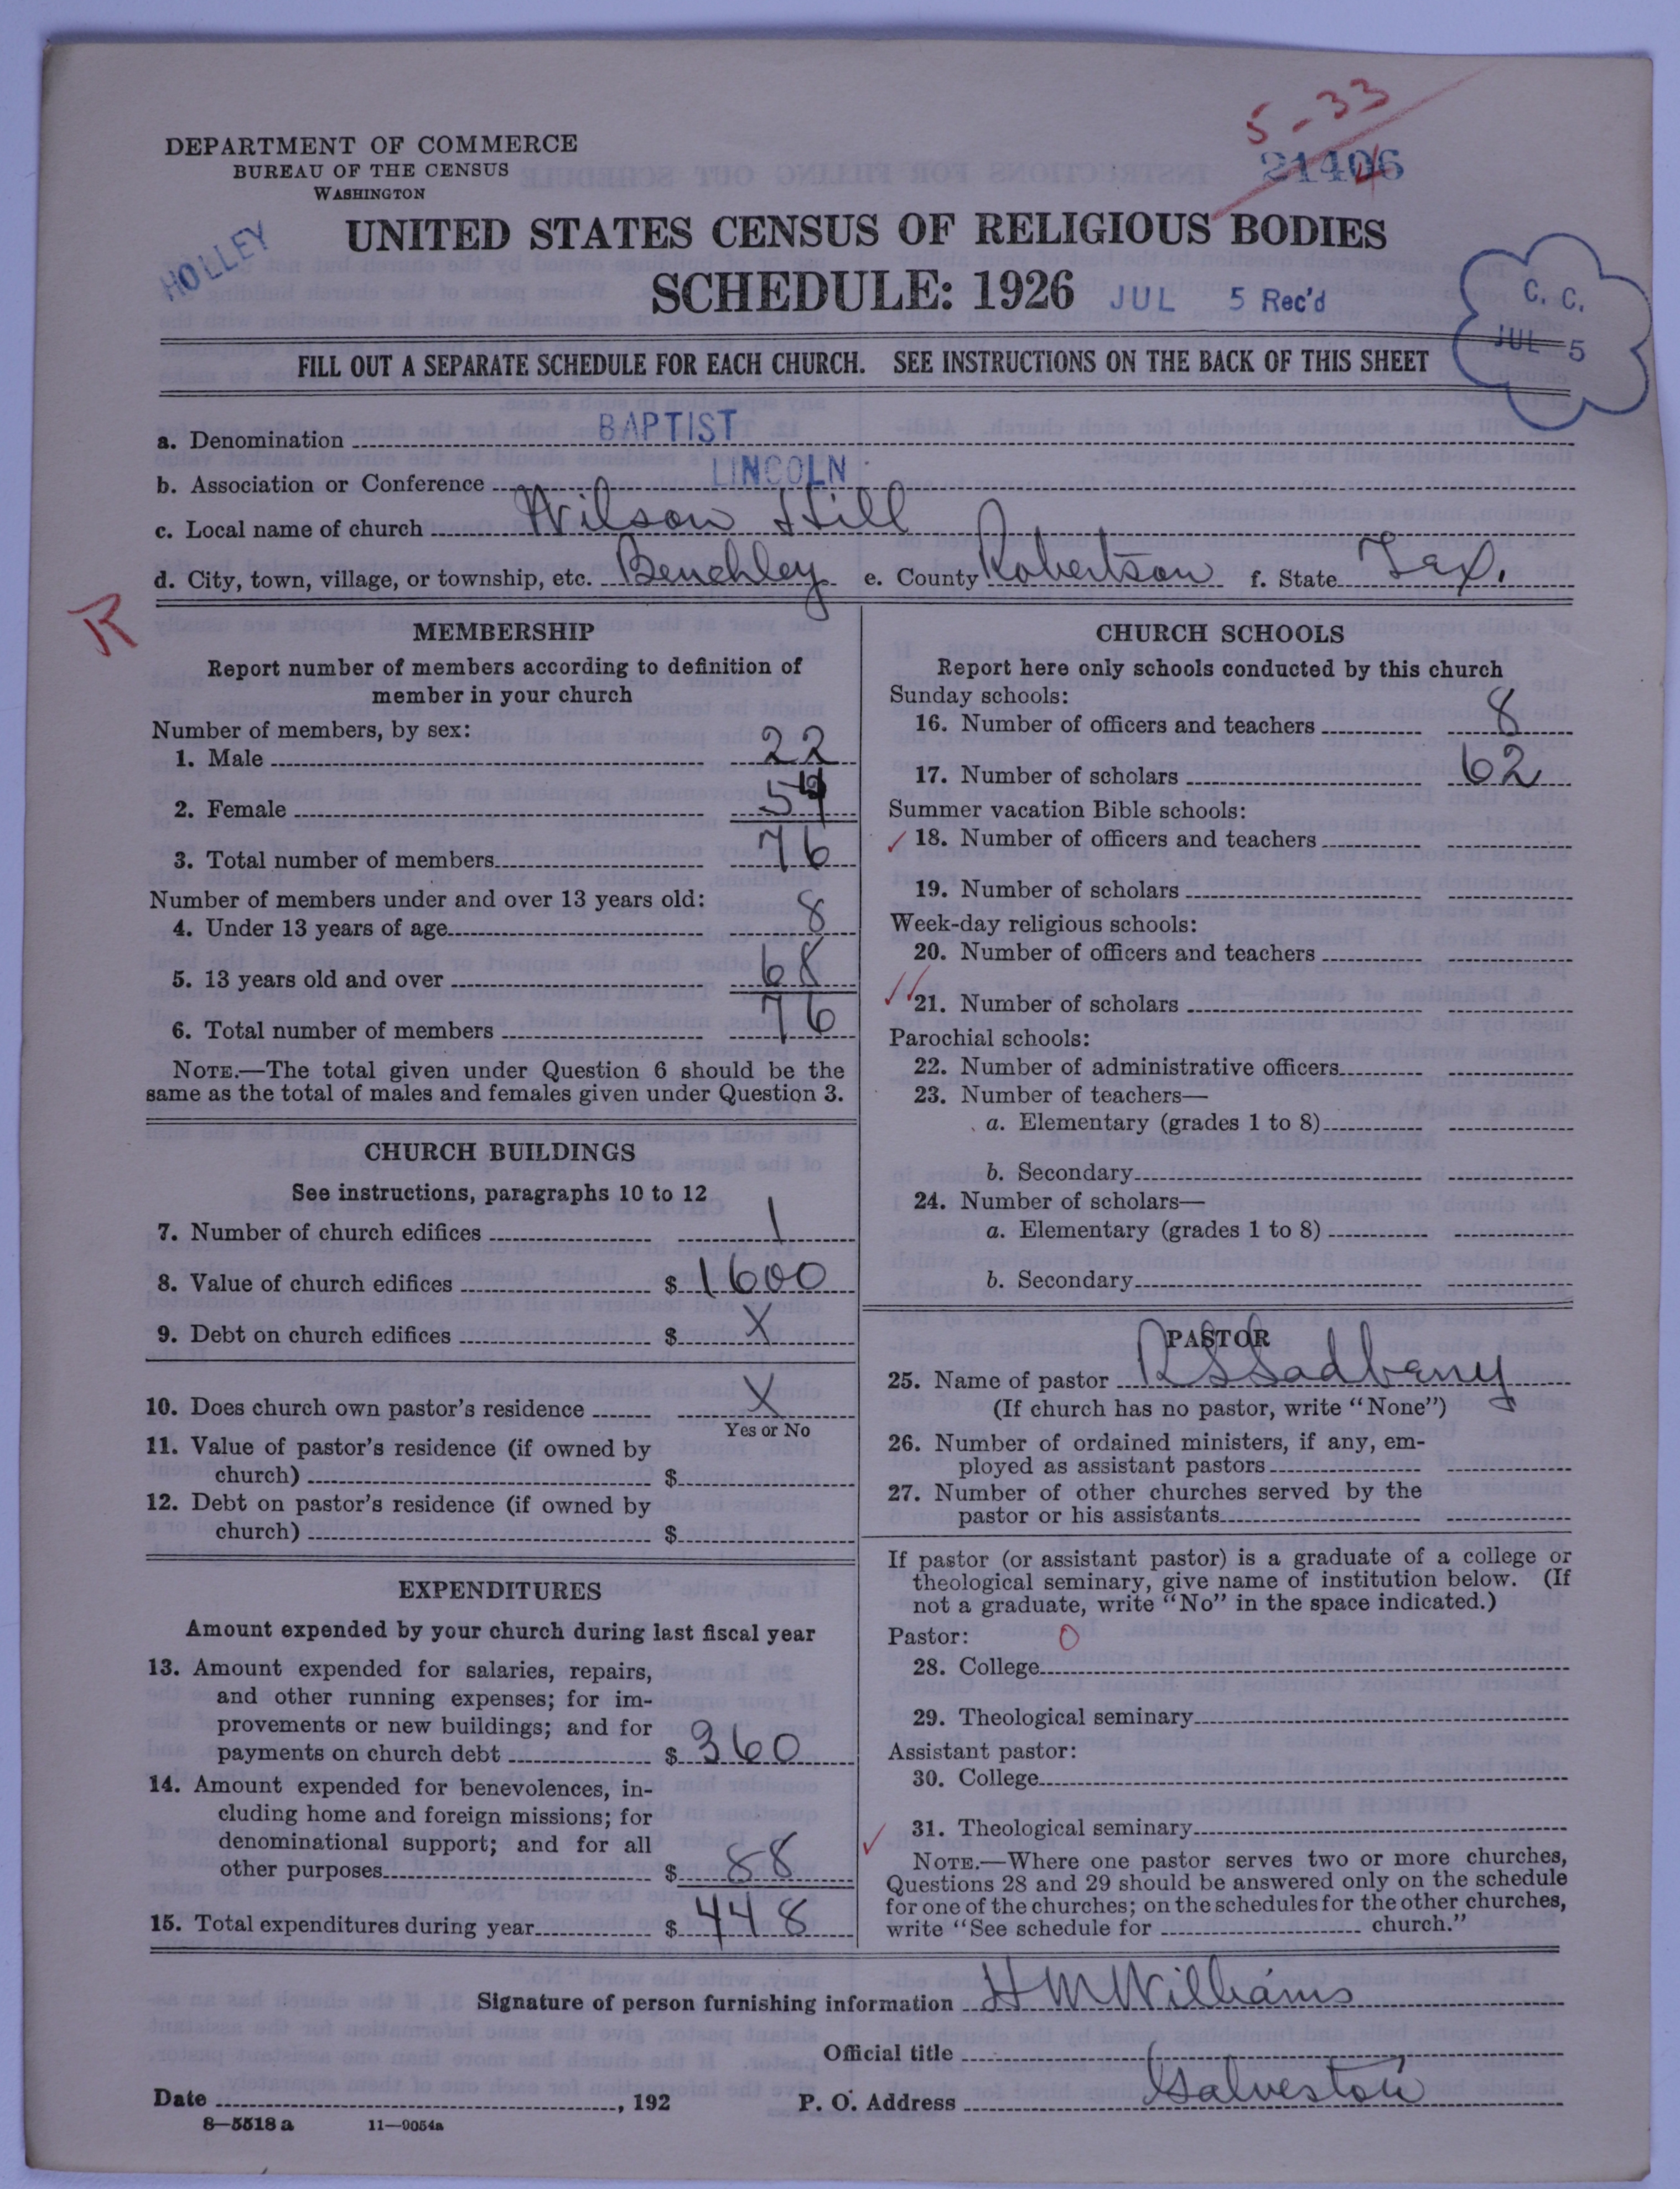 5-33
21406
DEPARTMENT OF COMMERCE
BUREAU OF THE CENSUS
WASHINGTON
HOLLEY
UNITED STATES CENSUS OF RELIGIOUS BODIES
SCHEDULE: 1926 JUL 5 Rec'd
C. C.
JUL 5
FILL OUT A SEPARATE SCHEDULE FOR EACH CHURCH. SEE INSTRUCTIONS ON THE BACK OF THIS SHEET
a. Denomination BAPTIST
b. Association or Conference LINCOLN
c. Local name of church Wilson Hill
d. City, town, village, or township, etc. Benchley e. County Robertson f. State Tex.
R
MEMBERSHIP
Report number of members according to definition of
member in your church
Number of members, by sex:
1. Male 22
2. Female 54
3. Total number of members 76
Number of members under and over 13 years old:
4. Under 13 years of age 8
5. 13 years old and over 68
6. Total number of members 76
NOTE.—The total given under Question 6 should be the
same as the total of males and females given under Question 3.
CHURCH BUILDINGS
See instructions, paragraphs 10 to 12
7. Number of church edifices 1
8. Value of church edifices $ 1600
9. Debt on church edifices $ X
10. Does church own pastor's residence X
Yes or No
11. Value of pastor's residence (if owned by
church) $
12. Debt on pastor's residence (if owned by
church) $
EXPENDITURES
Amount expended by your church during last fiscal year
13. Amount expended for salaries, repairs,
and other running expenses; for im-
provements or new buildings; and for
payments on church debt $ 360
14. Amount expended for benevolences, in-
cluding home and foreign missions; for
denominational support; and for all
other purposes $ 88
15. Total expenditures during year $ 448
CHURCH SCHOOLS
Report here only schools conducted by this church
Sunday schools:
16. Number of officers and teachers 8
17. Number of scholars 62
Summer vacation Bible schools:
18. Number of officers and teachers
19. Number of scholars
Week-day religious schools:
20. Number of officers and teachers
21. Number of scholars
Parochial schools:
22. Number of administrative officers
23. Number of teachers—
a. Elementary (grades 1 to 8)
b. Secondary
24. Number of scholars—
a. Elementary (grades 1 to 8)
b. Secondary
PASTOR
25. Name of pastor R S Sadberry
(If church has no pastor, write "None")
26. Number of ordained ministers, if any, em-
ployed as assistant pastors
27. Number of other churches served by the
pastor or his assistants
If pastor (or assistant pastor) is a graduate of a college or
theological seminary, give name of institution below. (If
not a graduate, write "No" in the space indicated.)
Pastor: 0
28. College
29. Theological seminary
Assistant pastor:
30. College
31. Theological seminary
NOTE.—Where one pastor serves two or more churches,
Questions 28 and 29 should be answered only on the schedule
for one of the churches; on the schedules for the other churches,
write "See schedule for church."
Signature of person furnishing information H M Williams
Official title
Date , 192 P. O. Address Galveston
8—5518 a 11—9054a